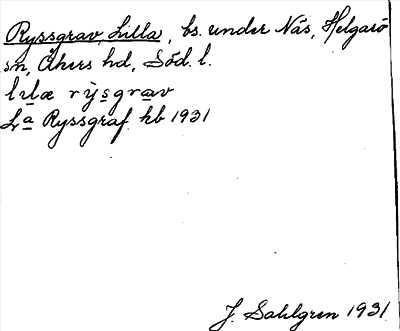 Ryssgrav, Lilla, bs. under Näs, Helgarö
sn, Åkers hd, Söd. l.
lılæ rỳsgrav
L:a Ryssgraf hb 1931
J. Sahlgren 1931